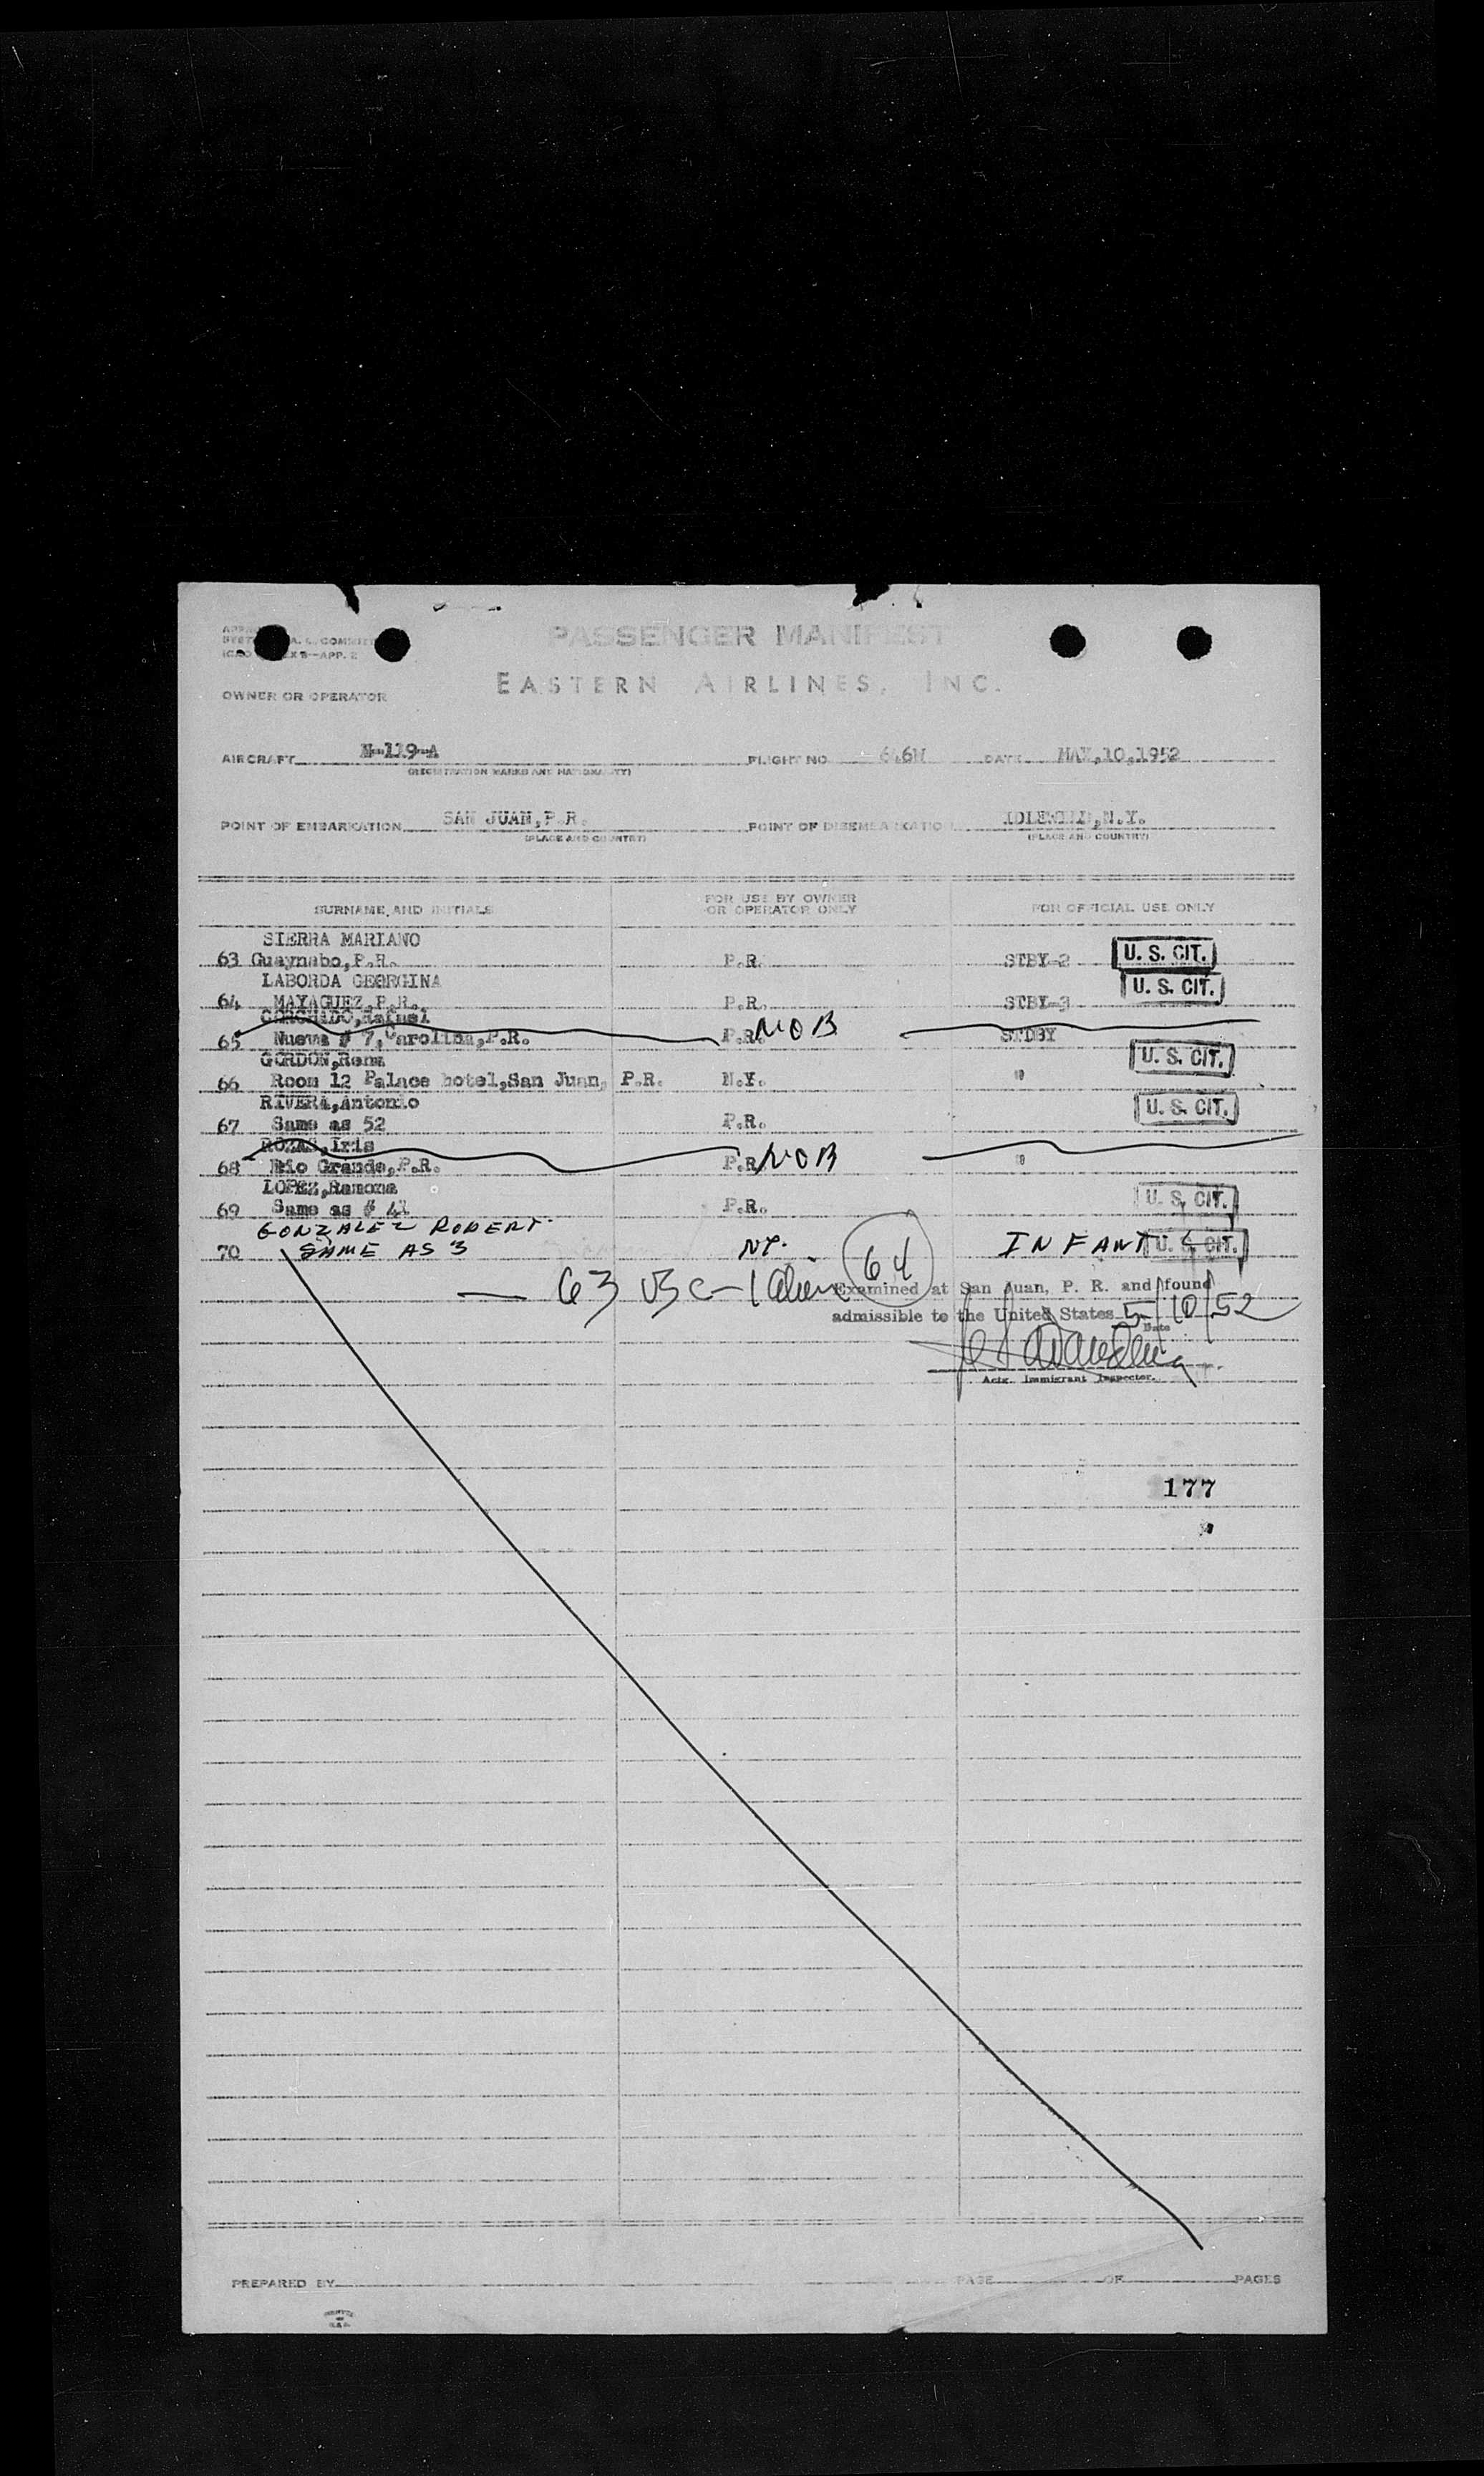 PASSENGER MANIFEST
EASTERN AIRLINES, INC.
OWNER OR OPERATOR
AIRCRAFT N-119-A FLIGHT NO 646N DATE MAY,10,1952
(REGISTRATION MARKS AND NATIONALITY)
POINT OF EMBARKATION SAN JUAN,P.R. POINT OF DISEMBARKATION IDLEWILD,N.Y.
(PLACE AND COUNTRY) (PLACE AND COUNTRY)
SURNAME AND INITIALS FOR USE BY OWNER OR OPERATOR ONLY FOR OFFICIAL USE ONLY
SIERRA MARIANO
63 Guaynabo,P.R. P.R. STBY-2 U. S. CIT.
LABORDA GEORGINA
64 MAYAGUEZ,P.R. P.R. STBY-3 U. S. CIT.
CORCHADO,Rafael
65 Nueva # 7,Carolina,P.R. P.R. NOB STDBY
GORDON,Rena
66 Room 12 Palace hotel,San Juan, P.R. N.Y. " U. S. CIT.
RIVERA,Antonio
67 Same as 52 P.R. U. S. CIT.
ROZAS,Iris
68 Rio Grande,P.R. P.R. NOB "
LOPEZ,Ramona
69 Same as # 41 P.R. U. S. CIT.
GONZALEZ ROBERT.
70 SAME AS 3 NY. INFANT U. S. CIT.
— 63 USC – 1 Alien 64
Examined at San Juan, P. R. and found
admissible to the United States 5/10/52
Date
Actg. Immigrant Inspector.
177
PREPARED BY PAGE OF PAGES